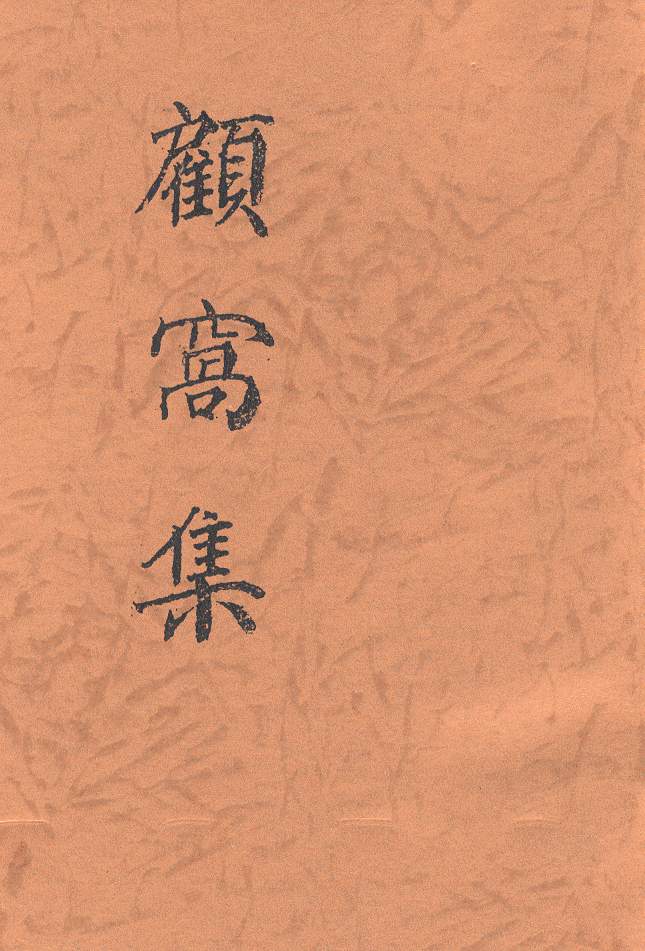 顧窩集